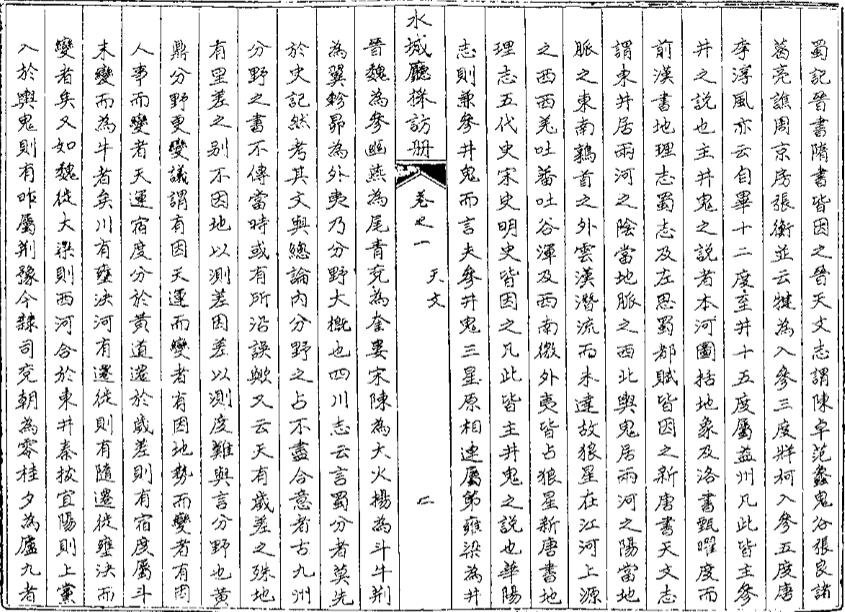 蜀記晉書隋書皆因之晉天文志謂陳卓范蠡鬼谷張良諸
葛亮譙周京房張衡並云犍為入參三度牂柯入參五度唐
李淳風亦云自畢十二度至井十五度屬益州凡此皆主參
井之說也主井鬼之說者本河圖括地象及洛書甄曜度而
前漢書地理志蜀志及左思蜀都賦皆因之新唐書天文志
謂東井居兩河之陰當地脈之西北輿鬼居兩河之陽當地
脈之東南鶉首之外雲漢潛流而未達故狼星在江河上源
之西西羌吐蕃吐谷渾及西南徼外夷皆占狼星新唐書地
理志五代史宋史明史皆因之凡此皆主井鬼之說也華陽
志則兼參井鬼而言夫參井鬼三星原相連屬第雍梁為井
水城廳採訪册
卷之一
天文
二
晉魏為參幽燕為尾青兖為奎婁宋陳為大火揚為斗牛荆
為翼軫昴為外夷乃分野大概也四川志云言蜀分者莫先
於史記然考其文與總論內分野之占不盡合意者古九州
分野之書不傳當時或有所沿誤歟又云天有歲差之殊地
有里差之别不因地以測差因差以測度難與言分野也黃
鼎分野更變議謂有因天運而變者有因地勢而變者有因
人事而變者天運宿度分於黃道遷於歲差則有宿度屬斗
未變而為牛者矣川有壅決河有遷徙則有隨遷徙壅決而
變者矣又如魏徙大梁則西河合於東井秦拔宜陽則上黨
入於輿鬼則有昨屬荆豫今隸司兖朝為零桂夕為廬九者